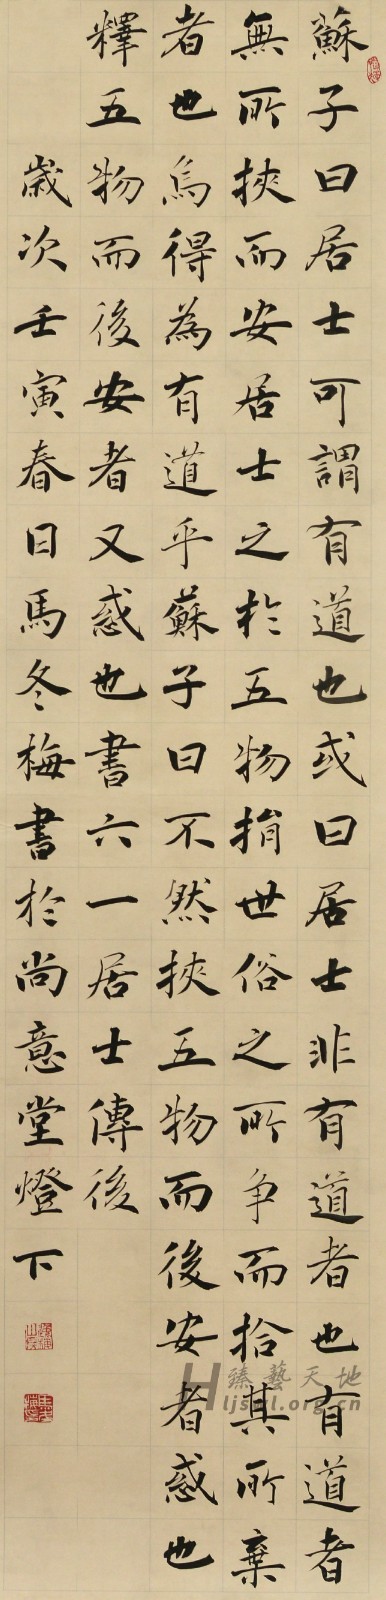 蘇子曰居士可謂有道也或曰居士非有道者也有道者
無所挾而安居士之於五物捐世俗之所争而拾其所棄
者也烏得為有道乎蘇子曰不然挾五物而後安者惑也
釋五物而後安者又惑也書六一居士傳後
歲次壬寅春日馬冬梅書於尚意堂燈下
臻藝天地
Hljswl.org.cn